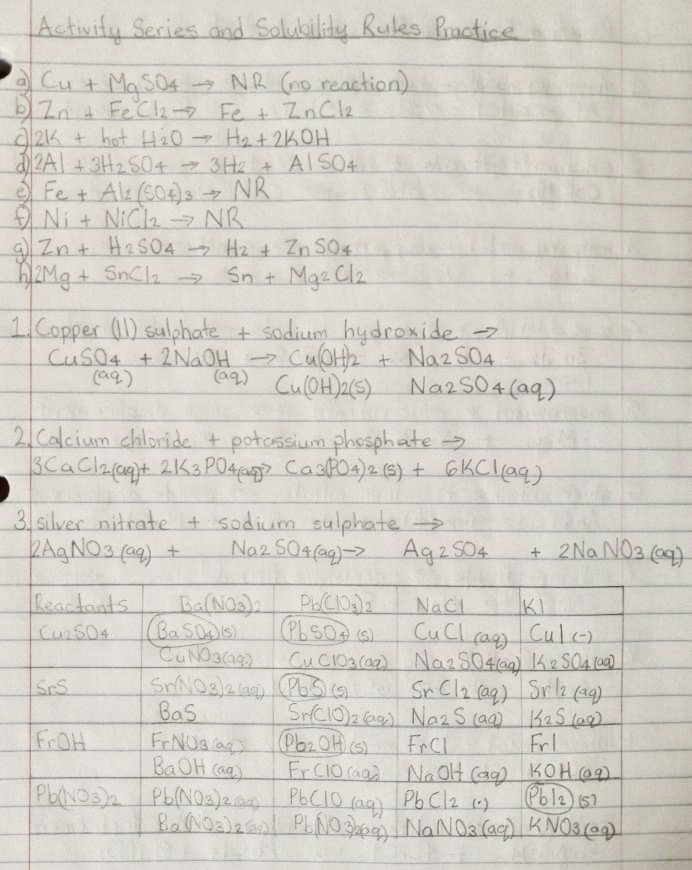 Activity Series and Solubility Rules Practice
a) Cu + MgSO4 → NR (no reaction)
b) Zn + FeCl2 → Fe + ZnCl2
c) 2K + hot H2O → H2 + 2KOH
d) 2Al + 3H2SO4 → 3H2 + AlSO4
e) Fe + Al2(SO4)3 → NR
f) Ni + NiCl2 → NR
g) Zn + H2SO4 → H2 + ZnSO4
h) 2Mg + SnCl2 → Sn + Mg2Cl2
1. Copper (II) sulphate + sodium hydroxide →
CuSO4 + 2NaOH → Cu(OH)2 + Na2SO4
(aq) (aq) Cu(OH)2(s) Na2SO4(aq)
2. Calcium chloride + potassium phosphate →
3CaCl2(aq) + 2K3PO4(aq) → Ca3(PO4)2(s) + 6KCl(aq)
3. silver nitrate + sodium sulphate →
2AgNO3(aq) + Na2SO4(aq) → Ag2SO4 + 2NaNO3(aq)
Reactants Ba(NO3)2 Pb(ClO3)2 NaCl KI
Cu2SO4 BaSO4(s) PbSO4(s) CuCl(aq) CuI(-)
CuNO3(aq) CuClO3(aq) Na2SO4(aq) K2SO4(aq)
SrS Sr(NO3)2(aq) PbS(s) SrCl2(aq) SrI2(aq)
BaS Sr(ClO)2(aq) Na2S(aq) K2S(aq)
FrOH FrNO3(aq) Pb2OH(s) FrCl FrI
BaOH(aq) FrClO(aq) NaOH(aq) KOH(aq)
Pb(NO3)2 Pb(NO3)2(aq) PbClO(aq) PbCl2(-) PbI2(s)
Ba(NO3)2(aq) Pb(NO3)2(aq) NaNO3(aq) KNO3(aq)